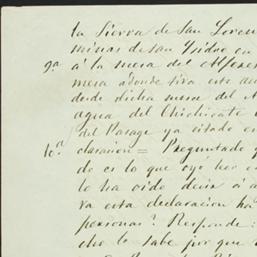 la Sierra de San Loren
minas de san Ysidro en
9ª á la mesa del Alferes
mesa adonde tiva este
desde dicha mesa del A
agua del Chichicate
del Pasage ya citado en
10ª claracion = Preguntado
do es lo que oyó
lo ha oido decir á
va esta declaracion ha
personas? Responde:
cho lo sabe por que